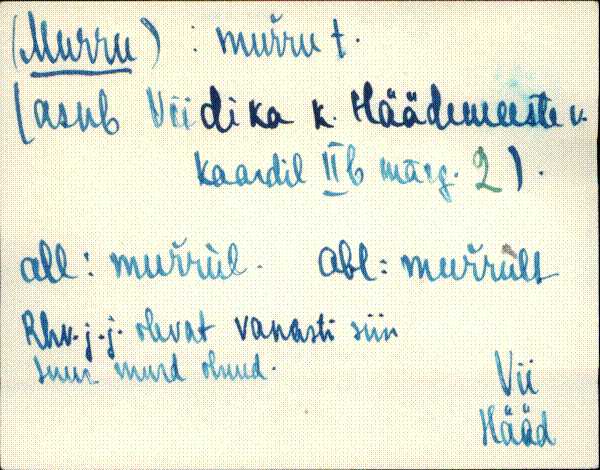 (Murru) : muřřu t.
(asub Viidika k. Häädemeeste v.
kaardil IIb märg. 2).
all: muřřùl. abl: muřřùlt
Rhv. j.j. olevat vanasti siin
suur murd olnud.
Vii
Hääd